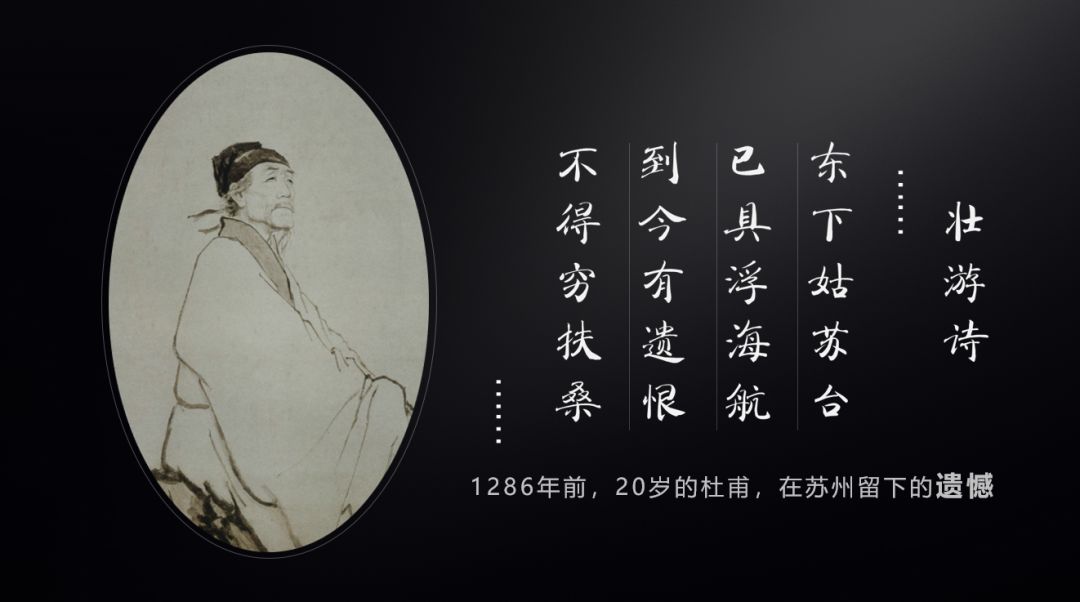 壮游诗
……
东下姑苏台
已具浮海航
到今有遗恨
不得穷扶桑
……
1286年前，20岁的杜甫，在苏州留下的遗憾